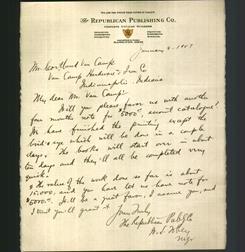 The Republican Publishing Co.
January 2, 1907
Mr. Cortland Van Camp
Van Camp Hardware & Iron Co
Indianapolis, Indiana
My dear Mr. Van Camp:
Will you please favor us with another
four months note for $5000, account catalogue?
We have finished the printing except the
bird's eye which will be done in a couple
days. The books will start over in about
ten days and they'll all be completed very
quick.
The value of the work done so far is about
15,000, and you have let us have note for
$5000. It'll be a great favor, I assure you, and
I trust you'll grant it
Yours Truly,
The Republican Pub Co
Mgr